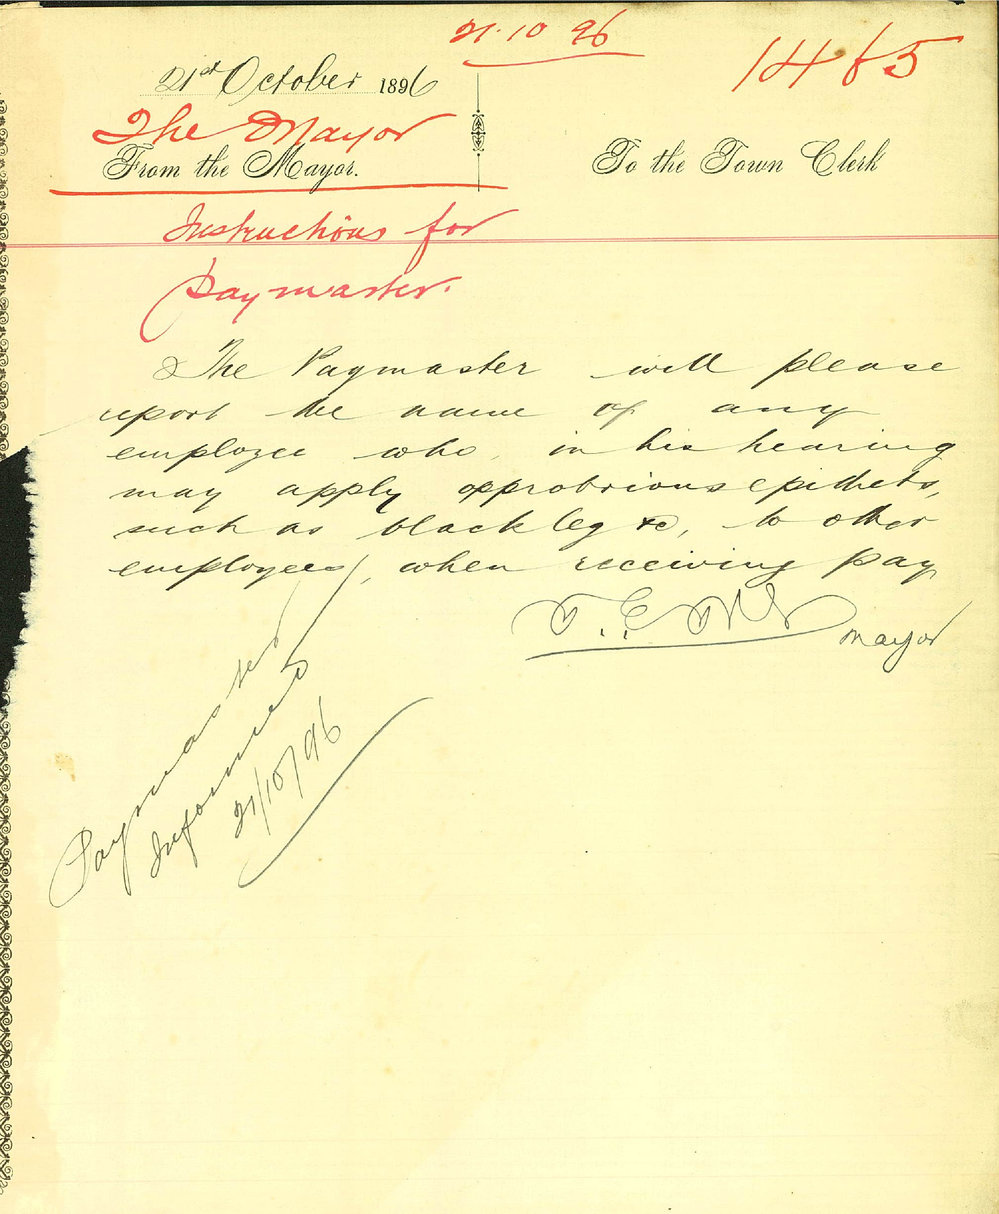 21.10 96
1465
21st October 1896
The Mayor
From the Mayor.
To the Town Clerk
Instructions for
Paymaster.
The Paymaster will please
report the name of any
employee who, in his hearing
may apply opprobrious epithets,
such as blackleg &c, to other
employees, when receiving pay
Mayor
Paymaster
Informed
21/10/96